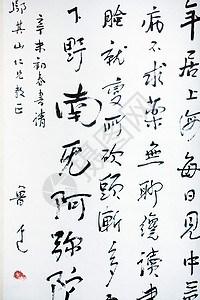 年居上海每日見中
病不求藥無聊纔讀書
臉就變所砍頭漸多
下野南无阿彌陀
辛未初春書請
鄔其山仁兄教正
魯迅